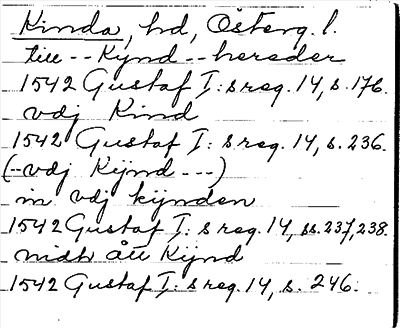 Kinda, hd, Österg. l.
till -- Kynd -- hereder
1542 Gustaf I: s reg. 14, s. 176.
vdj Kind
1542 Gustaf I: s reg. 14, s. 236.
(-- vdj Kÿnd ---)
in vdj kÿnden
1542 Gustaf I: s reg. 14, ss. 237, 238.
nidh ått Kÿnd
1542 Gustaf I: s reg. 14, s. 246.